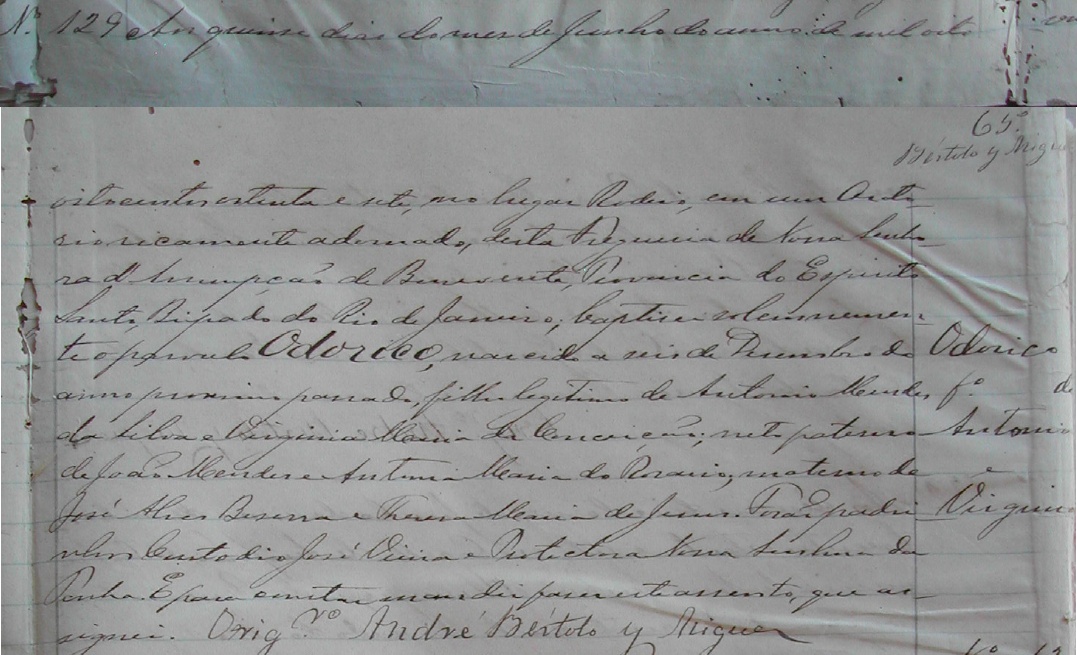 Nº 129 Aos quinse dias do mes de Junho do anno de mil oito
65º
Bértolo y Migue
oitocentos oitenta e sete, no lugar Rodeio, em um Orato-
rio ricamente adornado, desta Freguesia de Nossa Senho-
ra d'Assumpção de Benevente, Provincia do Espirito
Santo, Bispado do Rio de Janeiro, baptisei solemnemen-
te o parvulo Odorico, nascido a seis de Desembro do
anno proximo passado, filho legitimo de Antonio Mendes
da Silva e Virginia Maria da Conceição; neto paterno
de João Mendes e Antonia Maria do Rosario, materno de
José Alves Beserra e Theresa Maria de Jesus. Forão padri-
nhos Custodio José Vieira e Protectora Nossa Senhora da
Penha. E para constar mandei faser este assento, que as-
signei. Orig.º André Bértolo y Miguer
Odorico
fº de
Antonio
e
Virginia